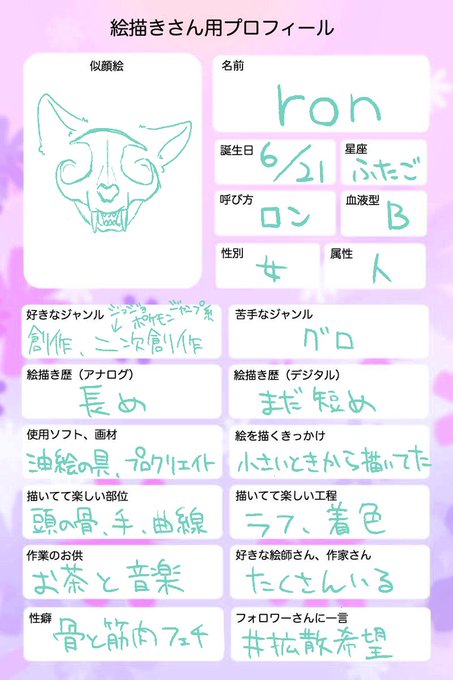 絵描きさん用プロフィール
似顔絵
名前
ron
誕生日
6/21
星座
ふたご
呼び方
ロン
血液型
B
性別
女
属性
人
好きなジャンル
ジョジョ ポケモン ジャンプ系
創作、二次創作
苦手なジャンル
グロ
絵描き歴（アナログ）
長め
絵描き歴（デジタル）
まだ短め
使用ソフト、画材
油絵の具、プロクリエイト
絵を描くきっかけ
小さいときから描いてた
描いてて楽しい部位
頭の骨、手、曲線
描いてて楽しい工程
ラフ、着色
作業のお供
お茶と音楽
好きな絵師さん、作家さん
たくさんいる
性癖
骨と筋肉フェチ
フォロワーさんに一言
#拡散希望